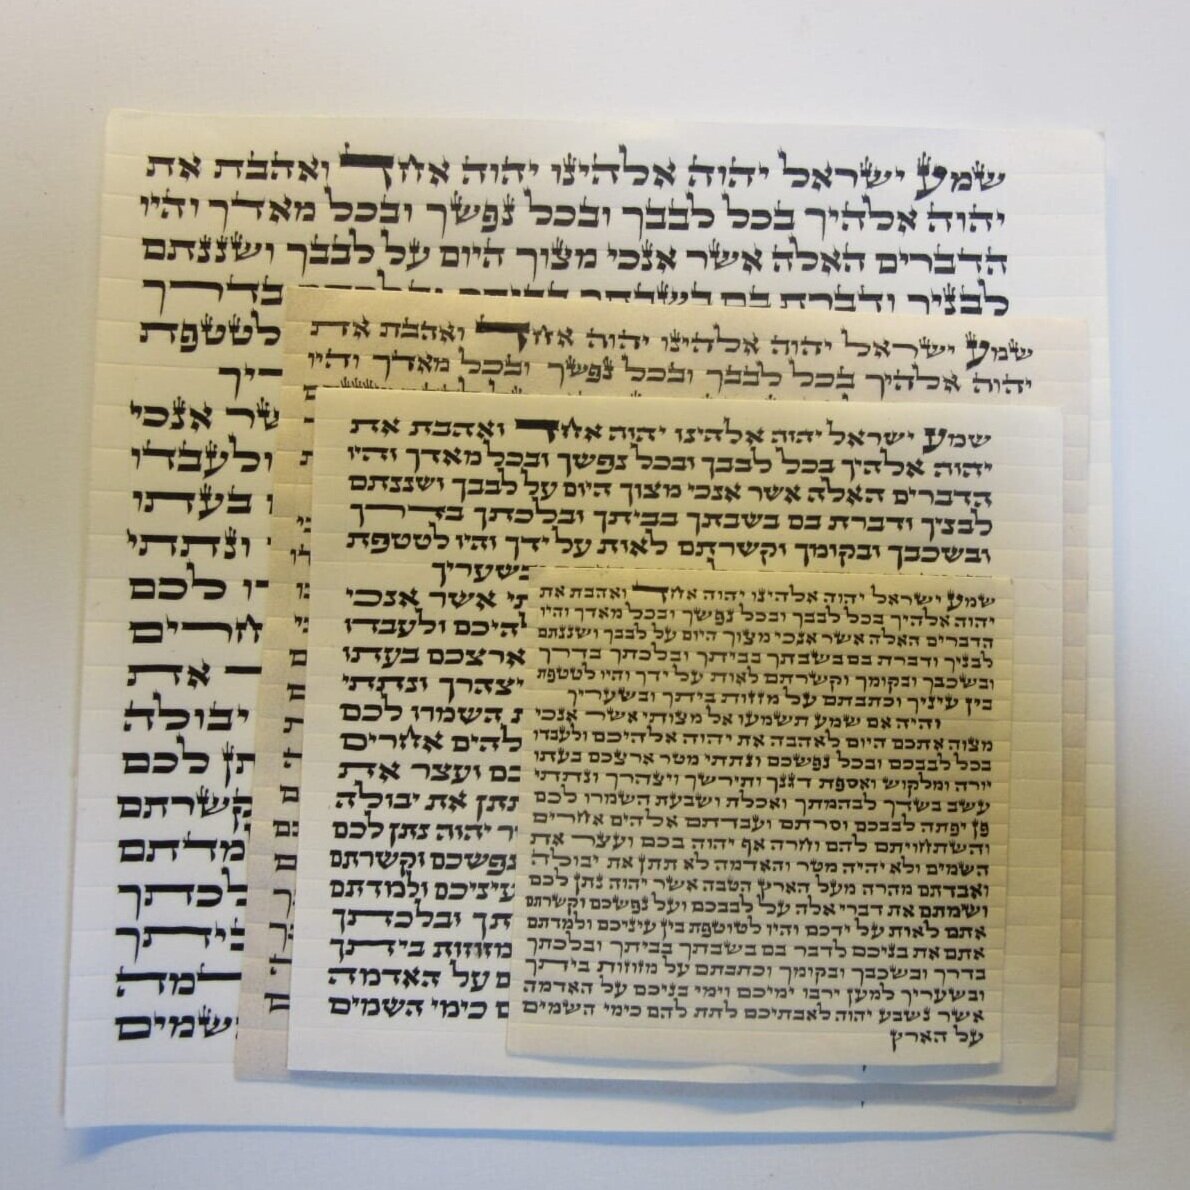 שמע ישראל יהוה אלהינו יהוה אחד ואהבת את
יהוה אלהיך בכל לבבך ובכל נפשך ובכל מאדך והיו
הדברים האלה אשר אנכי מצוך היום על לבבך ושננתם
לבניך ודברת בם בשבתך בדרך
לטטפת
אנכי
ולעבדו
בעתו
ונתתי
לכם
אחרים
את
יבולה
לכם
וקשרתם
שמע ישראל יהוה אלהינו יהוה אחד ואהבת את
יהוה אלהיך בכל לבבך ובכל נפשך ובכל מאדך והיו
שמע ישראל יהוה אלהינו יהוה אחד ואהבת את
יהוה אלהיך בכל לבבך ובכל נפשך ובכל מאדך והיו
הדברים האלה אשר אנכי מצוך היום על לבבך ושננתם
לבניך ודברת בם בשבתך בביתך ובלכתך בדרך
ובשכבך ובקומך וקשרתם לאות על ידך והיו לטטפת
אשר אנכי
ולעבדו
ארצכם בעתו
ונתתי
השמרו לכם
אחרים
ועצר את
תתן את יבולה
יהוה נתן לכם
נפשכם וקשרתם
עיניכם ולמדתם
ובלכתך
מזוזות ביתך
על האדמה
כימי השמים
שמע ישראל יהוה אלהינו יהוה אחד ואהבת את
יהוה אלהיך בכל לבבך ובכל נפשך ובכל מאדך והיו
הדברים האלה אשר אנכי מצוך היום על לבבך ושננתם
לבניך ודברת בם בשבתך בביתך ובלכתך בדרך
ובשכבך ובקומך וקשרתם לאות על ידך והיו לטטפת
בין עיניך וכתבתם על מזזות ביתך ובשעריך
והיה אם שמע תשמעו אל מצותי אשר אנכי
מצוה אתכם היום לאהבה את יהוה אלהיכם ולעבדו
בכל לבבכם ובכל נפשכם ונתתי מטר ארצכם בעתו
יורה ומלקוש ואספת דגנך ותירשך ויצהרך ונתתי
עשב בשדך לבהמתך ואכלת ושבעת השמרו לכם
פן יפתה לבבכם וסרתם ועבדתם אלהים אחרים
והשתחויתם להם וחרה אף יהוה בכם ועצר את
השמים ולא יהיה מטר והאדמה לא תתן את יבולה
ואבדתם מהרה מעל הארץ הטבה אשר יהוה נתן לכם
ושמתם את דברי אלה על לבבכם ועל נפשכם וקשרתם
אתם לאות על ידכם והיו לטוטפת בין עיניכם ולמדתם
אתם את בניכם לדבר בם בשבתך בביתך ובלכתך
בדרך ובשכבך ובקומך וכתבתם על מזוזות ביתך
ובשעריך למען ירבו ימיכם וימי בניכם על האדמה
אשר נשבע יהוה לאבתיכם לתת להם כימי השמים
על הארץ